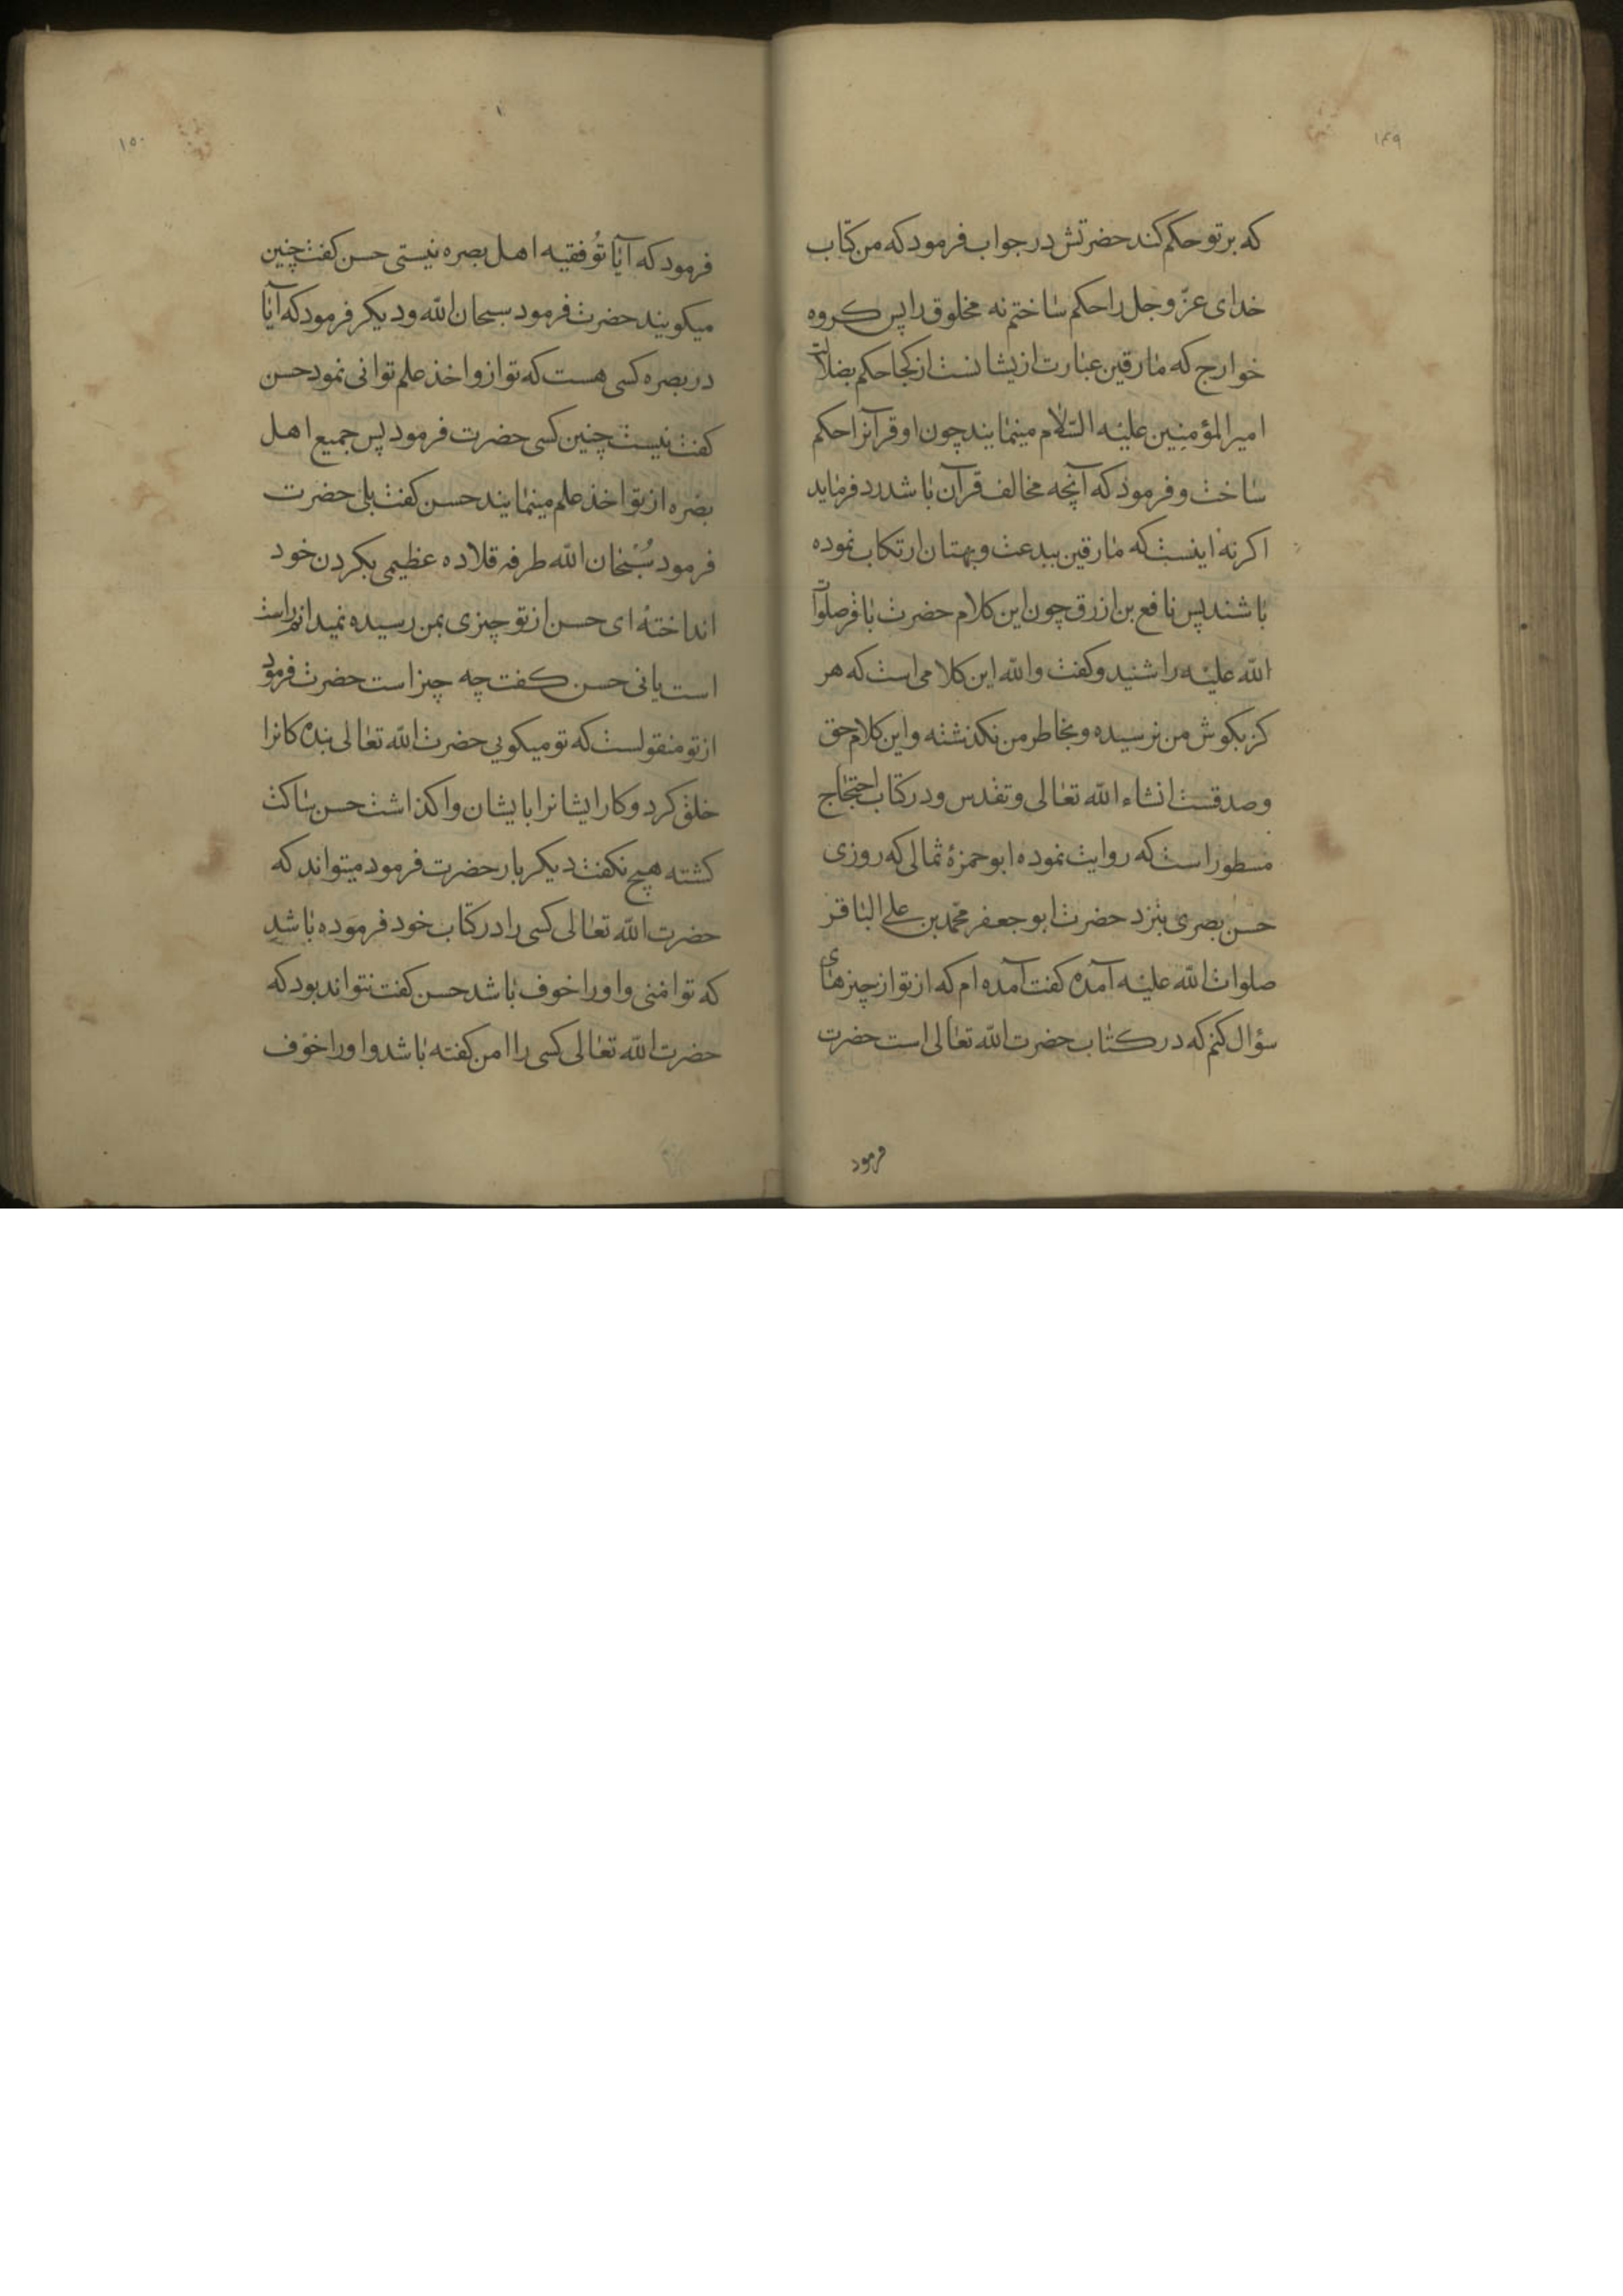 ۱۴۹
که بر تو حکم کند حضرتش در جواب فرمود که من کتاب
خدای عزّ و جل را حکم ساختم نه مخلوق را پس کروه
خوارج که مارقین عبارت ازیشانست از کجا حکم بضلالت
امیر المؤمنین علیه السّلام مینمایند چون او قرآنرا حکم
ساخت و فرمود که آنچه مخالف قرآن باشد رد فرماید
اکر نه اینست که مارقین ببدعت و بهتان ارتکاب نموده
باشند پس نافع بن ازرق چون این کلام حضرت باقر صلوات
الله علیه را شنید و کفت والله این کلامی است که هر
کز بکوش من نرسیده و بخاطر من نکذشته و این کلام حق
و صدقست انشاء الله تعالی و تقدس و در کتاب احتجاج
مسطور است که روایت نموده ابو حمزهٔ ثمالی که روزی
حسن بصری بنزد حضرت ابو جعفر محمّد بن علی الباقر
صلوات الله علیه آمده کفت آمده ام که از تو از چیزهای
سؤال کنم که در کتاب حضرت الله تعالی است حضرت
فرمود
۱۵۰
فرمود که آیا تُو فقیه اهل بصره نیستی حسن کفت چنین
میکویند حضرت فرمود سبحان الله و دیکر فرمود که آیا
در بصره کسی هست که تو ازو اخذ علم توانی نمود حسن
کفت نیست چنین کسی حضرت فرمود پس جمیع اهل
بصره از تو اخذ علم مینمایند حسن کفت بلی حضرت
فرمود سُبْحان الله طرفه قلاده عظیمی بکردن خود
انداختهٔ ای حسن از تو چیزی بمن رسیده نمیدانم راست
است یا نی حسن کفت چه چیز است حضرت فرمود
از تو منقولست که تو میکویی حضرت الله تعالی بنده کانرا
خلق کرد و کار ایشانرا بایشان واکذاشت حسن ساکت
کشته هیچ نکفت دیکر بار حضرت فرمود میتواند که
حضرت الله تعالی کسی را در کتاب خود فرموده باشد
که تو امنی و او را خوف باشد حسن کفت نتواند بود که
حضرت الله تعالی کسی را امن کفته باشد و او را خوف